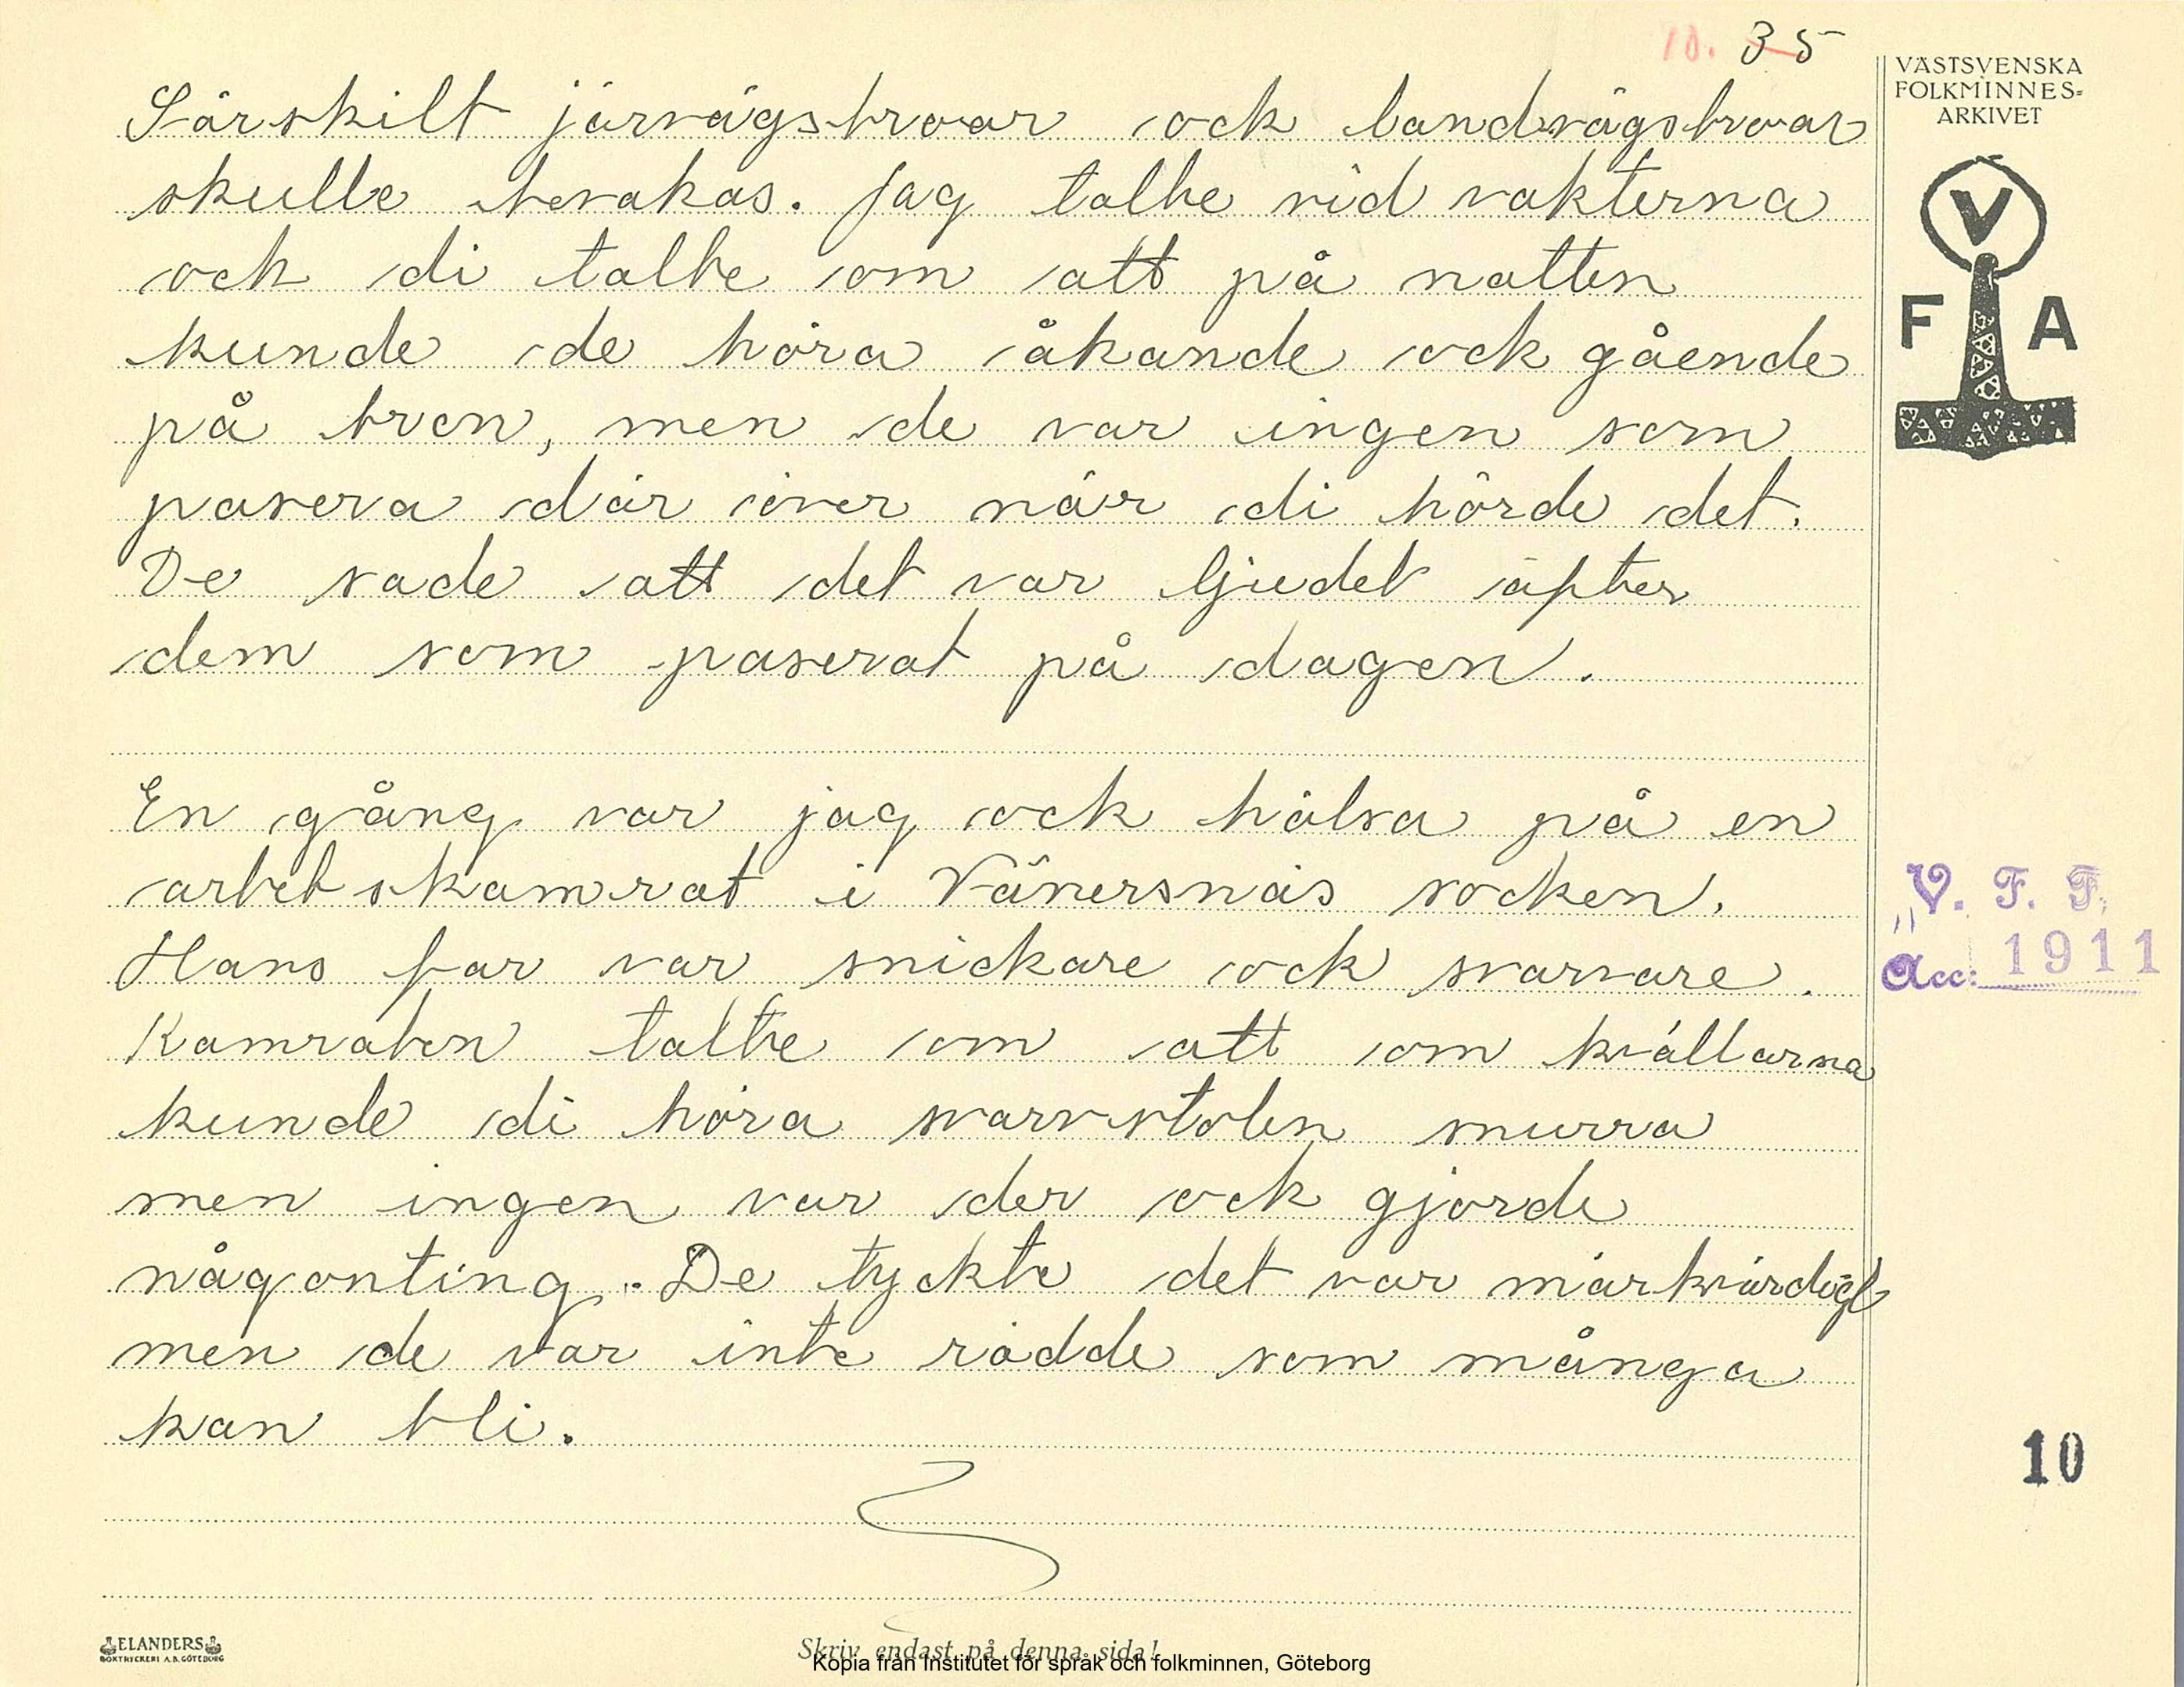 10. 35
VÄSTSVENSKA
FOLKMINNES-
ARKIVET
V
F A
Särskilt järvägsbroar ock landsvägsbroar
skulle bevakas. Jag talte vid vakterna
ock di talte om att på natten
kunde de höra åkande ock gående
på bron, men de var ingen som
pasera där över när di hörde det.
De sade att det var ljudet äpter
dem som paserat på dagen.
En gång var jag ock hälsa på en
arbetskamrat i Vänersnäs socken.
Hans far var snickare ock svarvare.
Kamraten talte om att om kvällarna
kunde di höra svarvstolen snurra
men ingen var der ock gjorde
någonting. De tyckte det var märkvärdigt
men de var inte rädde som många
kan bli.
V. F. F.
Acc: 1911
10
ELANDERS
BOKTRYCKERI A.B. GÖTEBORG
Skriv endast på denna sida!
Kopia från Institutet för språk och folkminnen, Göteborg